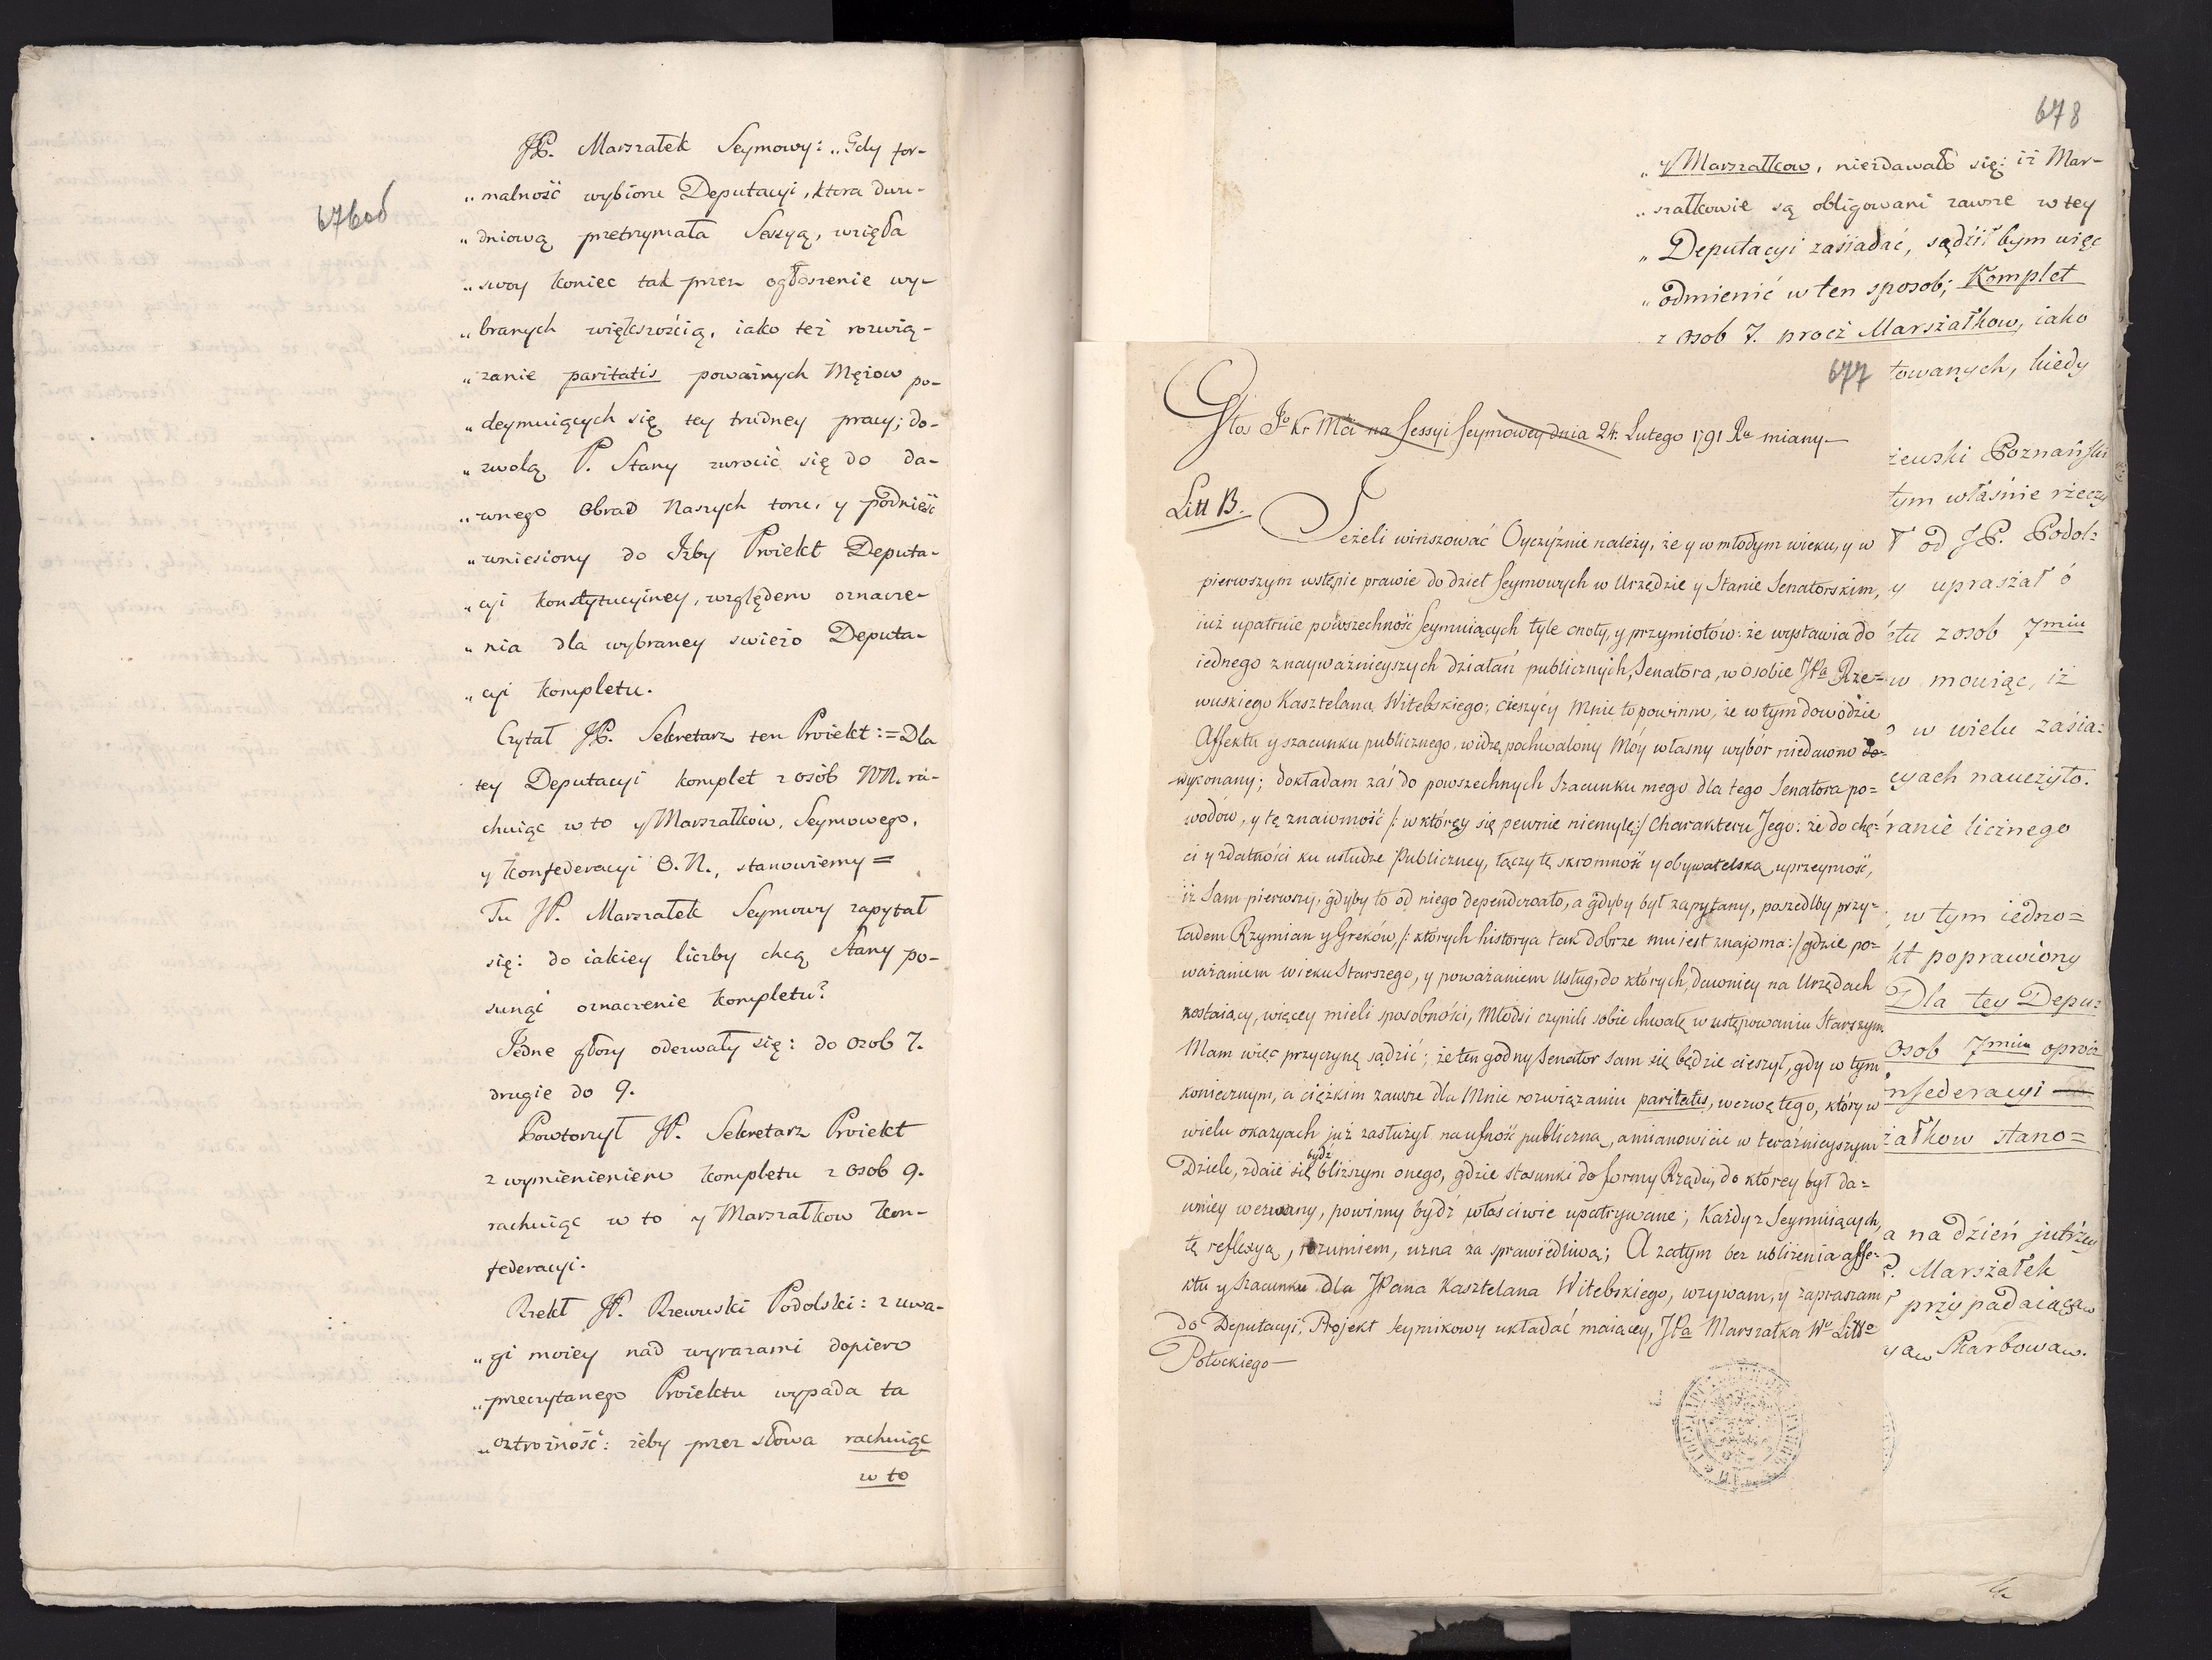 676об
JP. Marszałek Seymowy: „Gdy for-
„malność wybioru Deputacyi, ktora dwu-
„dniową przetrzymała Sessyą, wzięła
„swoy koniec tak przez ogłoszenie wy-
„branych większością, iako też rozwią-
„zanie paritatis poważnych Mężow po-
„deymuiących się tey trudney pracy; do-
„zwolą P. Stany zwrocić się do da-
„wnego Obrad Naszych toru, y podnieść
„wniesiony do Izby Proiekt Deputa-
„cyi Konstytucyiney, względem oznacze-
„nia dla wybraney swieżo Deputa-
„cyi kompletu.
Czytał JP. Sekretarz ten Proiekt:=Dla
tey Deputacyi komplet z osób NN. ra-
chuiąc w to y Marszałków, Seymowego,
y Konfederacyi O. N., stanowiemy=
Tu JP. Marszałek Seymowy zapytał
się: do iakiey liczby chcą Stany po-
sunąć oznaczenie kompletu?
Jedne głosy oderwały się: do osob 7.
drugie do 9.
Powtorzył JP. Sekretarz Proiekt
z wymienieniem kompletu z osob 9.
rachuiąc w to y Marszałkow Kon-
federacyi.
Rzekł JP. Rzewuski Podolski: z uwa-
„gi moiey nad wyrazami dopiero
„przeczytanego Proiektu wypada ta
„ostrożność: żeby przez słowa rachuiąc
w to
678
„y Marszałkow, niezdawało się: iż Mar-
„szałkowie są obligowani zawsze w tey
„Deputacyi zasiadać, sądził bym więc
„odmienić w ten sposob; Komplet
z osob 7. procż Marszałkow, iako
677
Głos Jo Kr Mci na Sessyi Seymowey dnia 24. Lutego 1791 Ru miany—
Litt B.
Jeżeli winszować Oyczyźnie należy, że y w młodym wieku, y w
pierwszym wstępie prawie do dzieł Seymowych w Urzędzie y Stanie Senatorskim,
iuż upatruie powszechność Seymuiących tyle cnoty, y przymiotów: że wystawia do
iednego z nayważnieyszych działań publicznych, Senatora, w osobie JPa Rze=
wuskiego Kasztelana Witebskiego; cieszyć Mnie to powinno, że w tym dowodzie
Affektu y szacunku publicznego, widzę pochwalony Móy własny wybór niedawno
wykonany; dokładam zaś do powszechnych Szacunku mego dla tego Senatora po=
wodów, y tę znaiomość /: w którey się pewnie niemylę:/ Charakteru Jego: że do chę=
ci y zdatności ku usłudze Publiczney, łączy tę skromność y obywatelską uprzeymość,
iż Sam pierwszy, gdyby to od niego dependowało, a gdyby był zapytany, poszedłby przy=
ładem Rzymian y Greków, /: których historya tak dobrze mu iest znajoma:/ gdzie po=
ważaniem wieku Starszego, y poważaniem Usług, do których, dawniey na Urzędach
zostaiący, więcey mieli sposobności, Młodsi czynili sobie chwałę w ustępowaniu Starszym
Mam więc przyczynę sądzić; że ten godny Senator sam się będzie cieszył, gdy w tym
koniecznym, a ciężkim zawsze dla Mnie rozwiązaniu paritatis, wezwę tego, który w
wielu okazyach już zasłużył na ufność publiczną, a mianowicie w teraźnieyszym
Dziele, zdaie się bydź bliższym onego, gdzie stosunki do formy Rządu, do którey był da=
wniey wezwany, powinny bydź właściwie upatrywane; Każdy z Seymuiących,
tę reflexyą, rozumiem, uzna za sprawiedliwą; A zatym bez ubliżenia affe=
ktu y Szacunku dla JPana Kasztelana Witebskiego, wzywam, y zapraszam
do Deputacyi, Projekt Seymikowy układać maiącey, JPa Marszałka Wo Litto
Potockiego—
towanych, kiedy
żewski Poznański
tym właśnie rzeczy
od JP. Podol=
y upraszał ó
etu z osob 7miu
w mowiąc, iż
w wielu zasia=
cyach nauczyło.
ranie licznego
w tym iedno=
kt poprawiony
Dla tey Depu=
osob 7miu oprócz
nfederacyi
żałkow stano=
a na dzień jutrzey
P. Marszałek
przypadaiącą
Skarbową.